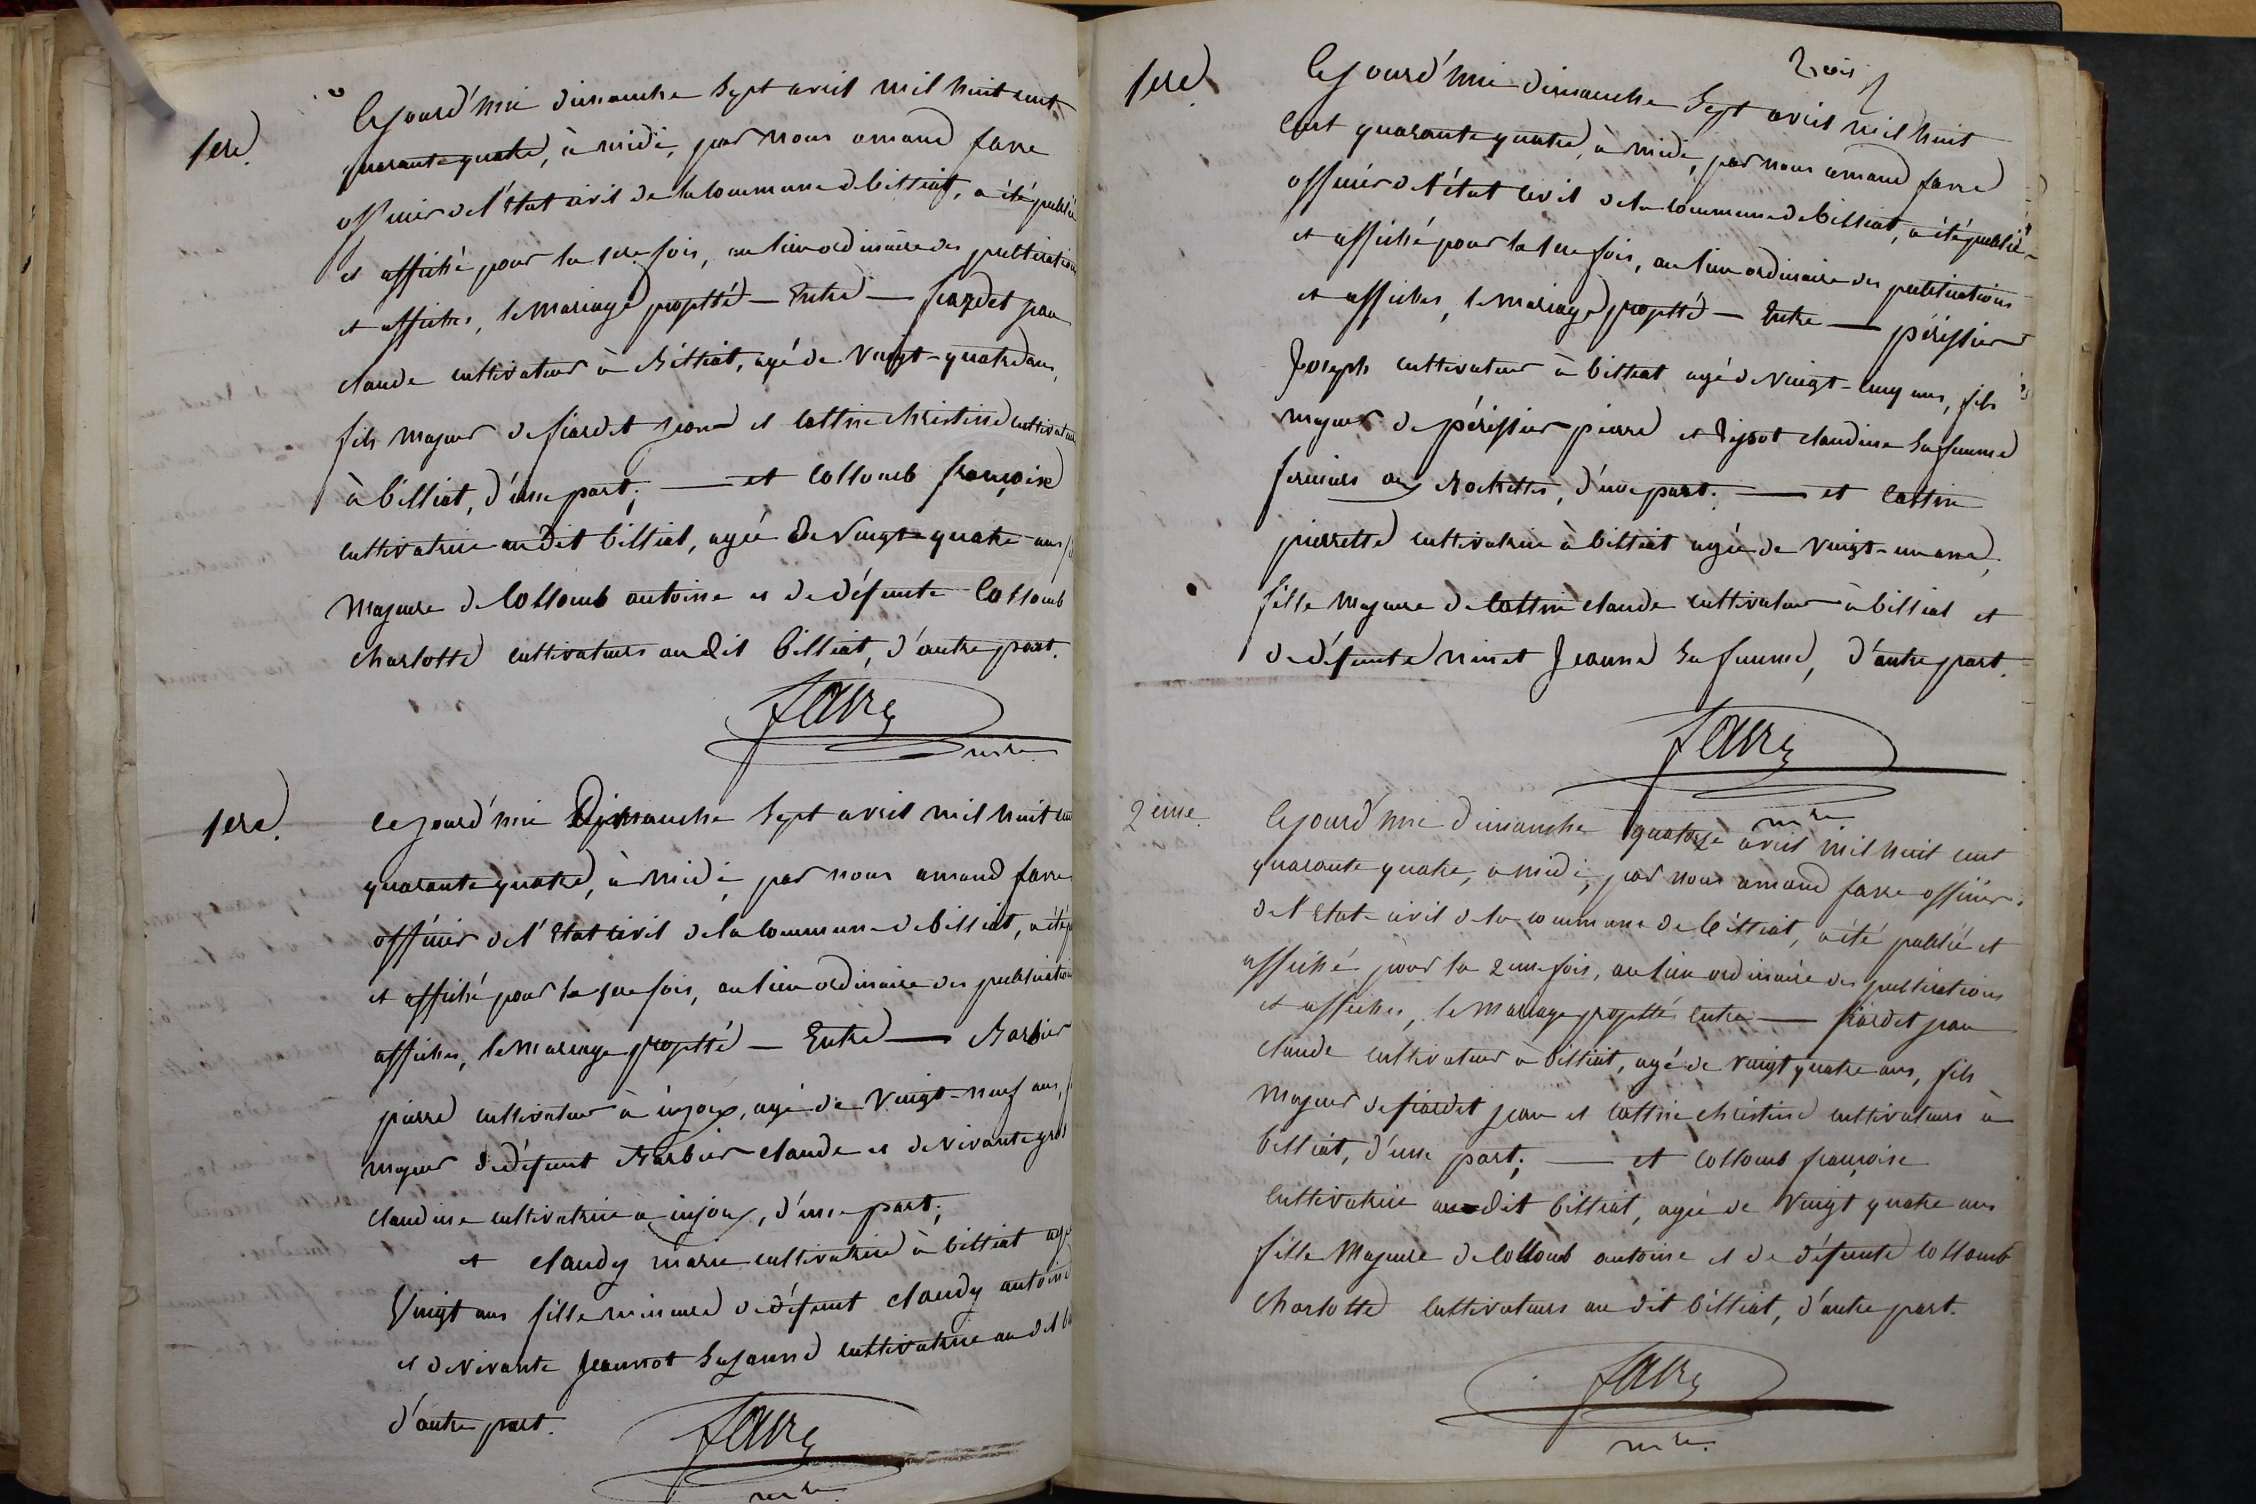 1ere.
Cejourd'hui dimanche sept avril mil huit cent
quarante quatre, à midi, par nous amand favre
officier de l'état civil de la commune de billiat, a été publié
et affiché pour la 1ere fois, au lieu ordinaire des publications
et affiches, le mariage projetté — Entre — fiardet jean
claude cultivateur à Billiat, agé de vingt-quatre ans,
fils majeur de fiardet jean et cottin christine cultivateurs
à billiat, d'une part; — et collomb françoise
cultivatrice audit billiat, agée de vingt-quatre ans
majeure de collomb antoine et de défunte collomb
charlotte cultivateurs audit billiat, d'autre part.
favre
mre.
1ere.
Cejourd'hui Dimanche sept avril mil huit cent
quarante quatre, à midi, par nous amand favre
officier de l'état civil de la commune de billiat, a été
et affiché pour la 1ere fois, au lieu ordinaire des publications
affiches, le mariage projetté — Entre — Barbier
pierre cultivateur à injoux, agé de vingt-neuf ans,
majeur de défunt Barbier claude et de vivante gros
claudine cultivatrice à injoux, d'une part;
et claudy marie cultivatrice à billiat agée
vingt ans fille mineure de défunt claudy antoine
et de vivante jeannot suzanne cultivatrice audit
d'autre part.
favre
mre.
trois
1ere.
Cejourd'hui dimanche sept avril mil huit
cent quarante quatre, à midi, par nous amand favre
officier de l'état civil de la commune de billiat, a été publié
et affiché pour la 1ere fois, au lieu ordinaire des publications
et affiches, le mariage projetté — Entre — périssier
Joseph cultivateur à billiat agé de vingt-cinq ans, fils
majeur de périssier pierre et claudine sa femme
fermiers aux Rochettes, d'une part. — et cottin
pierrette cultivatrice à billiat agée de vingt-un ans,
fille majeure de cottin claude cultivateur à billiat et
de défunte ninet Jeanne sa femme, d'autre part.
favre
mre
2ème.
Cejourd'hui dimanche quatorze avril mil huit cent
quarante quatre, à midi, par nous amand favre officier
de l'état civil de la commune de billiat, a été publié et
affiché pour la 2eme fois, au lieu ordinaire des publications
et affiches, le mariage projetté entre — fiardet jean
claude cultivateur à billiat, agé de vingt quatre ans, fils
majeur de fiardet jean et cottin christine cultivateurs à
billiat, d'une part; — et collomb françoise
cultivatrice audit billiat, agée de vingt quatre ans
fille majeure de collomb antoine et de défunte collomb
charlotte cultivateurs au dit billiat, d'autre part.
favre
mre.